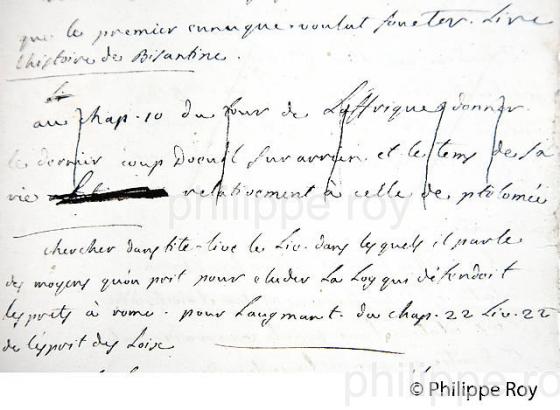 que le premier eunuque voulut foueter. Lire
l'histoire de Bisantine.
au chap. 10 du jour de L'affrique donner
le dernier coup Doeuil sur arrien et le tems de sa
vie relativement à celle de ptolomée
chercher dans tite-live le Liv. dans lesquels il parle
des moyens qu'on prit pour eluder La Loy qui défendoit
les prets à rome. pour L'augmant. du chap. 22 Liv. 22
de l'esprit des Loix
philippe roy
philippe ro
© Philippe Roy